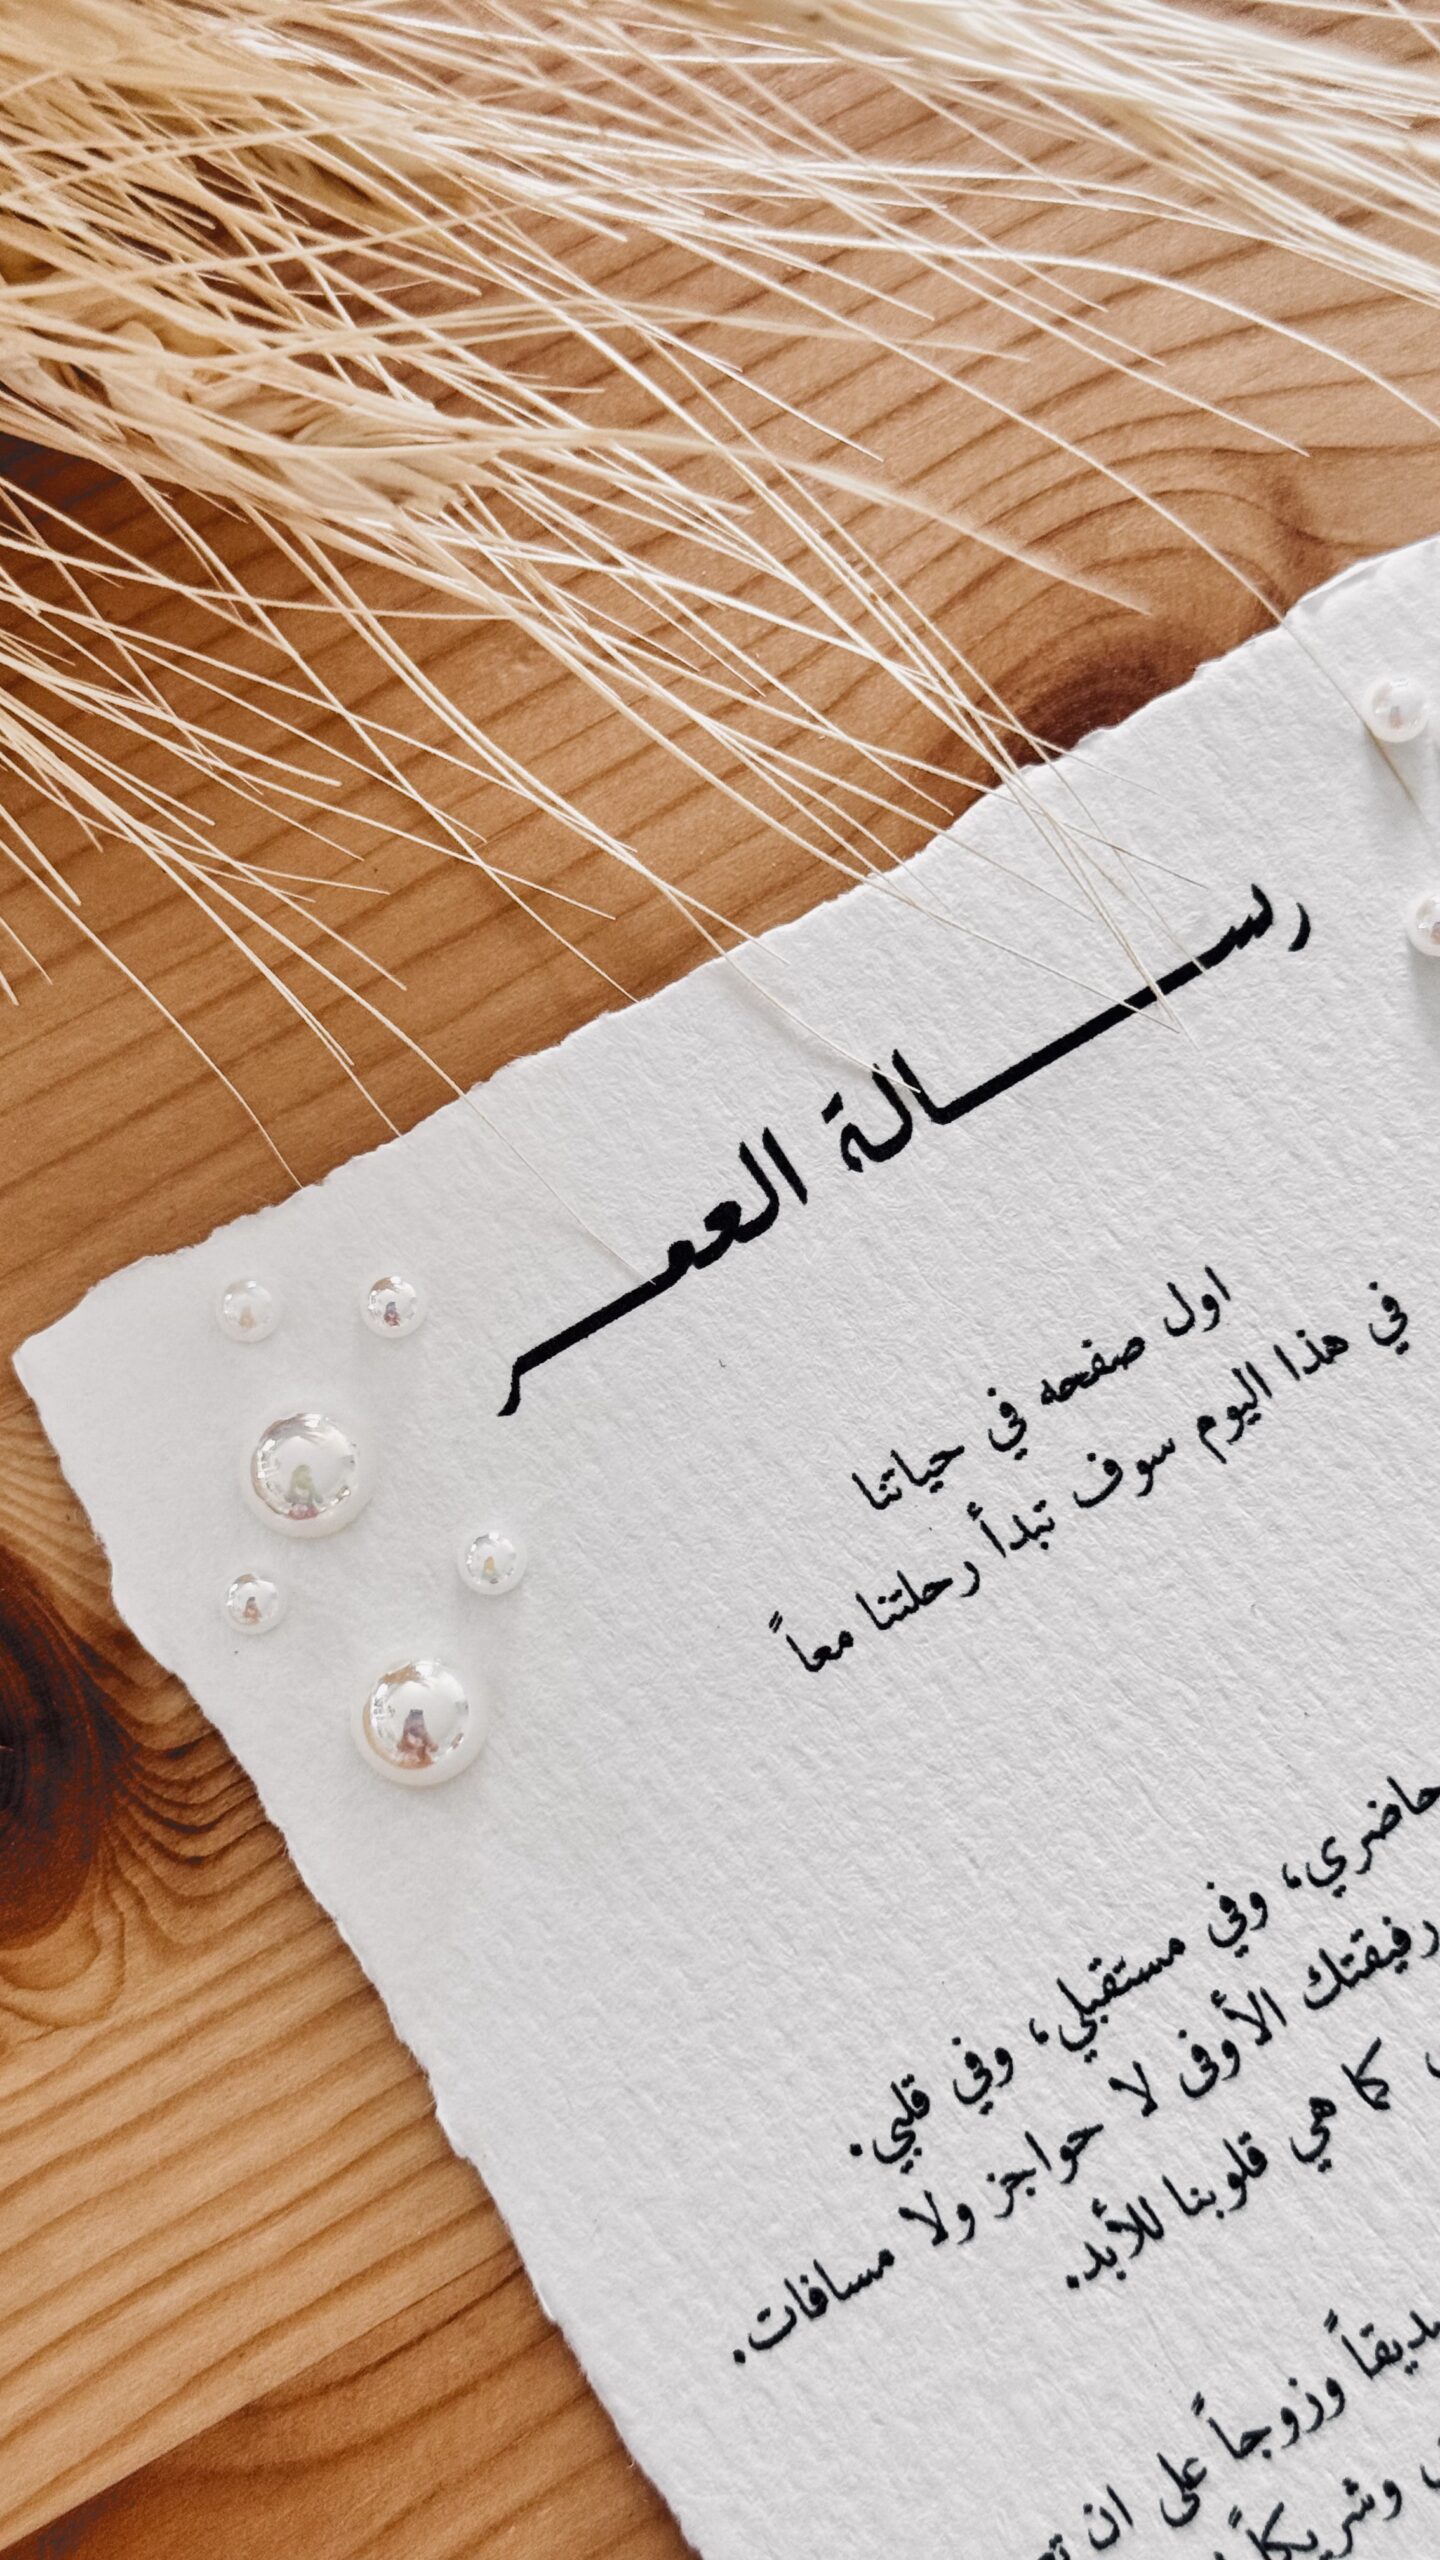 رســالة العمــر
اول صفحه في حياتنا
في هذا اليوم سوف تبدأ رحلتنا معاً
حاضري، وفي مستقبلي، وفي قلبي.
رفيقتك الأوفى لا حواجز ولا مسافات.
كما هي قلوبنا للأبد.
وزوجاً على ان
وشريكاً